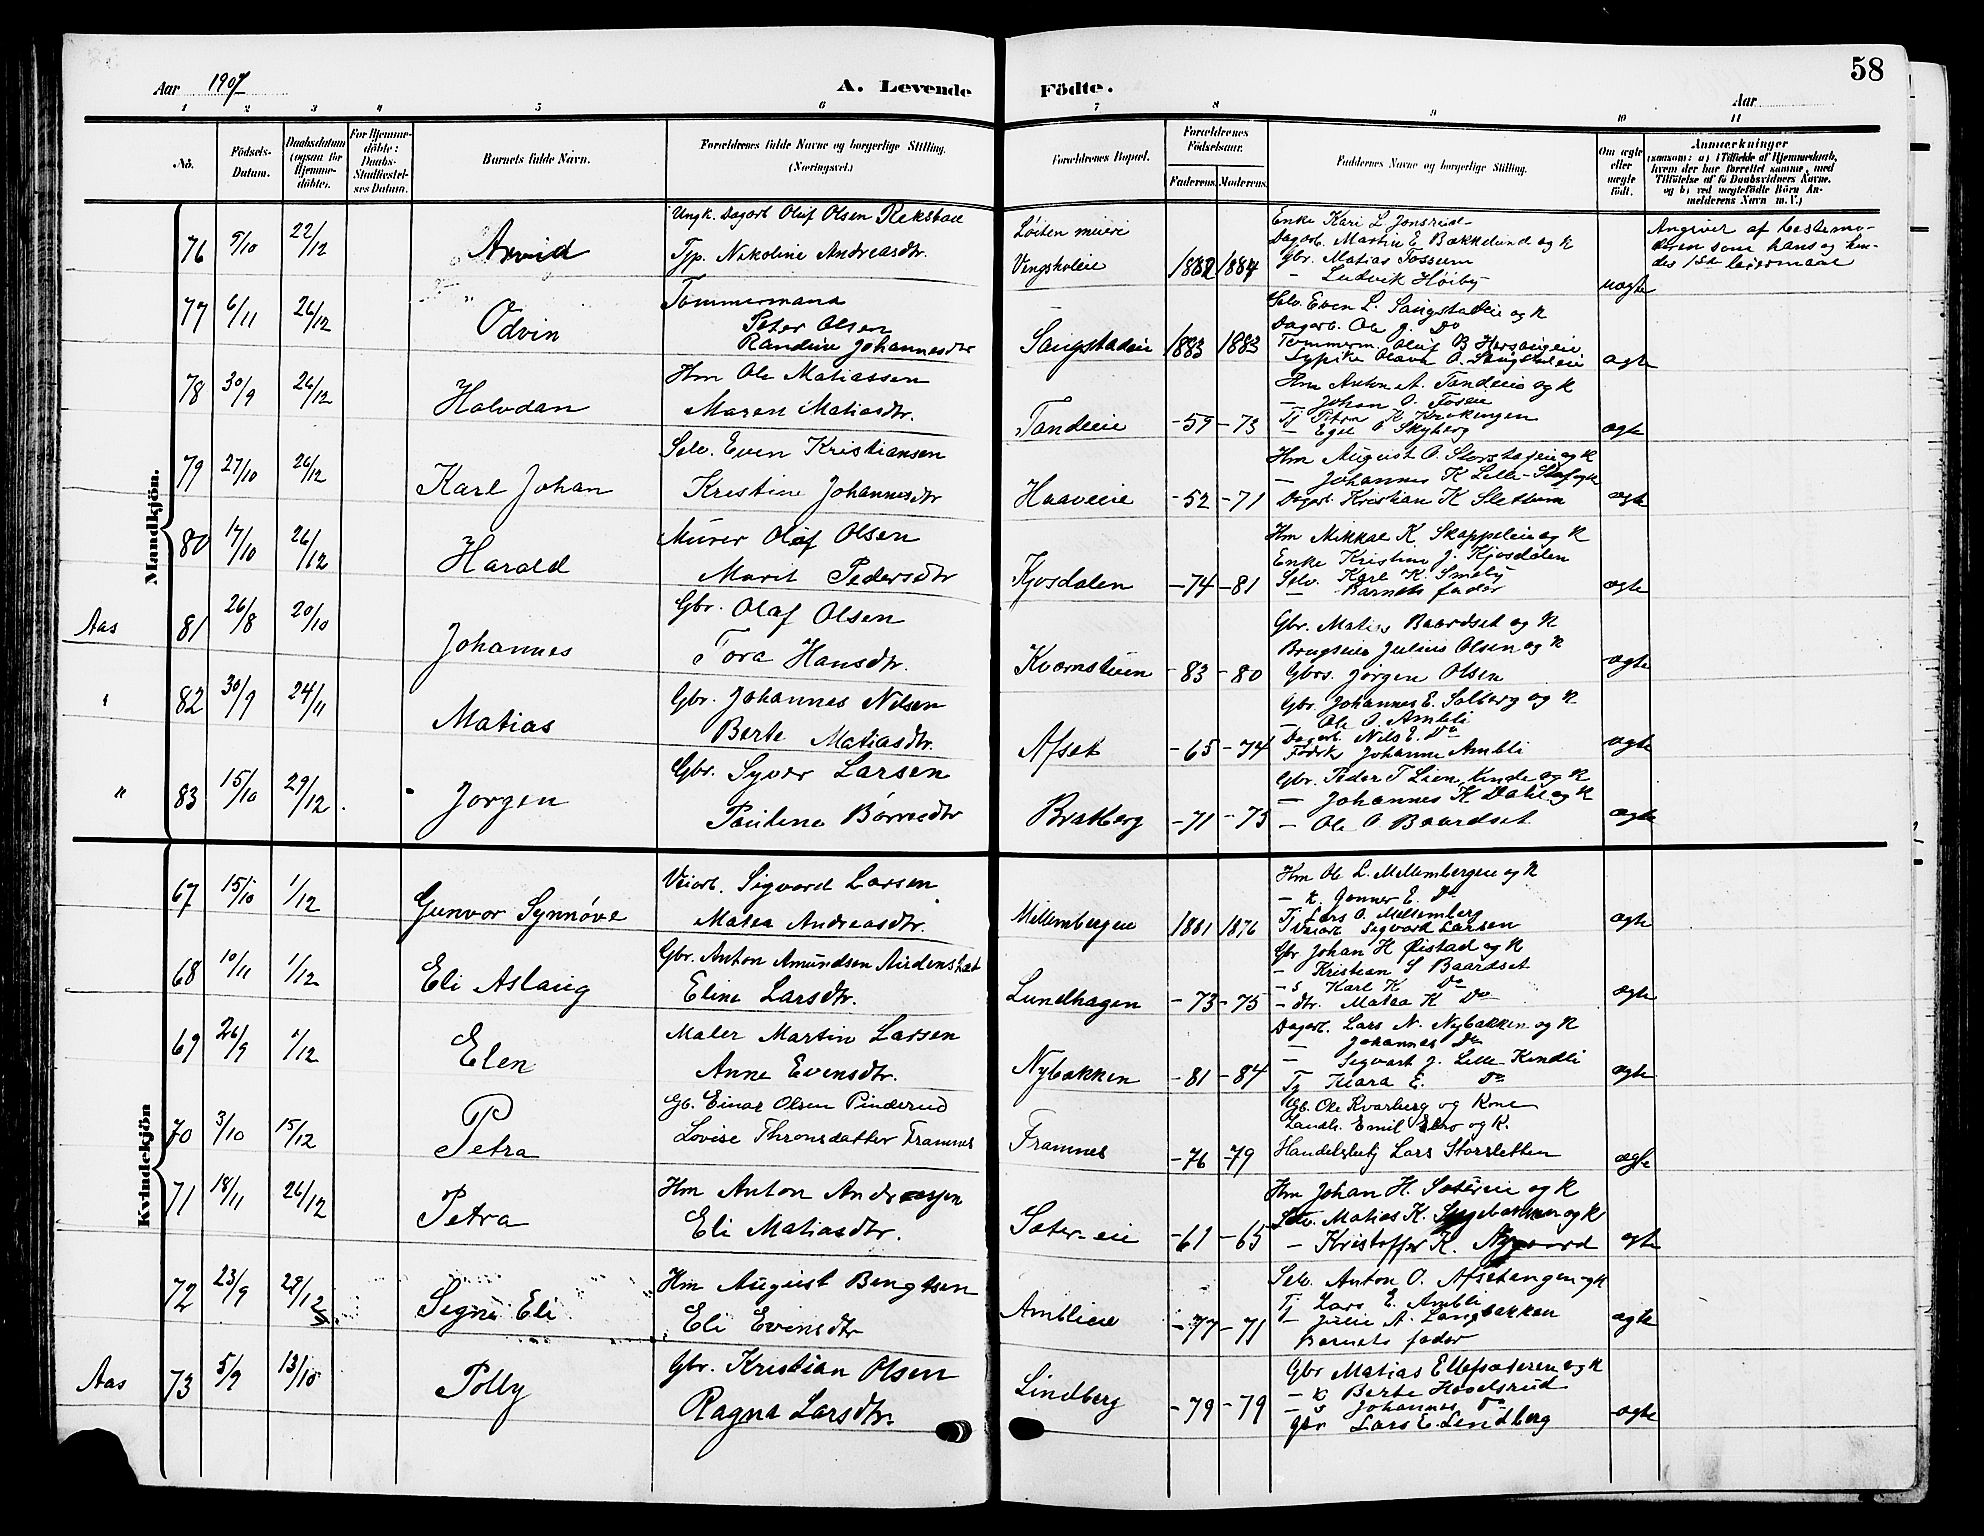 58
Aar 1907
A. Levende Födte.
Aar
1 2 3 4 5 6 7 8 9 10 11
No.
Födsels-Datum.
Daabsdatum (ogsaa for Hjemme-döbte).
For Hjemme-döbte: Daabs-Stadfæstel-ses Datum.
Barnets fulde Navn.
Forældrenes fulde Navne og borgerlige Stilling. (Næringsvei.)
Forældrenes Bopæl.
Forældrenes Födselsaar.
Faderens. Moderens.
Faddernes Navne og borgerlige Stilling.
Om ægte eller uægte födt.
Anmærkninger
(saasom: a) i Tilfælde af Hjemmedaab, hvem der har forrettet samme, med Tilföielse af to Daabsvidners Navne, og b) ved uægtefödte Börn An-melderens Navn m. V.)
Mandkjön.
76 9/10 22/12 Arvid
Ungk. Dagarb Oluf Olsen Rekstad
Tjp. Nikoline Andreasdtr.
Løiten meieri
Vingskoleie 1882 1884
Enke Kari L Jonsrud
Dagarb. Martin E Bakkelund og K
Gbr. Matias Tossum
— Ludvik Høiby
uægte
Angiver af bestemo-
deren som hans og hen-
des 1ste leiermaal
77 6/11 26/12 Odvin
Tømmermand
Peter Olsen
Randine Johannesdtr
Sangstadeie 1883 1883
Selv. Even L. Sangstadeie og K
Dagarb. Ole J. Do
Tømmerm. Oluf B
Sypike Olava O. Sangstadeie
ægte
78 30/9 26/12 Halvdan
Hm Ole Matiassen
Maren Matiasdtr.
Tandeie -59 -73
Hm Anton A. Tandeie og K
— Johan O. Fosen
Tj Petra K
— Egil O Skyberg
ægte
79 27/10 26/12 Karl Johan
Selv. Even Kristiansen
Kristine Johannesdtr
Haaveie -52 -71
Hm August O. Storstafeie og K
— Johannes K Lille-Staf og K
Dagarb. Kristian K Slettum
ægte
80 17/10 26/12 Harald
Murer Olaf Olsen
Marit Pedersdtr
Kjosdalen -74 -81
Hm Mikkal K Skappeleie og K
Enke Kristine J. Kjosdalen
Selv. Karl K. Smeby
Barnets fader
ægte
Aas 81 26/8 20/10 Johannes
Gbr. Olaf Olsen
Tora Hansdtr.
Kvernstuen -83 -80
Gbr. Matias Baardset og K
Brugseier Julius Olsen og K
Gbrs. Jørgen Olsen
ægte
" 82 30/9 24/11 Matias
Gbr. Johannes Nilsen
Berte Matiasdtr.
Afset -65 -74
Gbr. Johannes E. Solberg og K
— Ole O. Ambli
Dagarb Nils E. Do
Føderk Johanne Ambli
ægte
" 83 15/10 29/12 Jørgen
Gbr. Syver Larsen
Pauline Børresdtr
Bratberg -71 -75
Gbr. Peder T Lien Kinde og K
— Johannes K Dahl og K
— Ole O. Baardset
ægte
Kvindekjön
67 15/10 1/12 Gunvor Synnøve
Veiarb. Sigvard Larsen
Matea Andreasdtr.
Mellembergeie 1881 1876
Hm Ole L. Mellembergeie og K
— K. Gunner E. Do
Tj Lars O. Mellemberg
Veiarb Sigvard Larsen
ægte
68 10/11 1/12 Eli Aslaug
Gbr. Anton Amundsen
Eline Larsdtr.
Lundhagen -73 -75
Gbr Johan H Øistad og K
— Kristian S Baardset
— s Karl K Do
— dtr. Matea K Do
ægte
69 26/9 1/12 Elen
Maler Martin Larsen
Anne Evensdtr.
Nybakken -81 -84
Dagarb. Lars N. Nybakken og K
— Johannes Do
— Sigvart J. Lille-Kindli
Tj Klara E. Do
ægte
70 3/10 15/12 Petra
Gb. Einar Olsen Pinderud
Lovise Thronsdatter Framnes
Framnes -76 -79
Gb. Ole Kvarberg og Kone
Landh. Emil Elvo og K.
Handelsbetj Lars Storsletten
ægte
71 18/11 26/12 Petra
Hm Anton Andreassen
Eli Matiasdtr.
Sætereie -61 -65
Hm Johan H. Sætereie og K
Selv. Matias K. og K
— Kristoffer K. Nygaard
ægte
72 23/9 29/12 Signe Eli
Hm August Bengtsen
Eli Evensdtr
Amblieie -77 -71
Selv. Anton O. Afsetengen og K
Tj Lars E. Ambli
— Julie A. Langbakken
Barnets fader
ægte
Aas 73 5/9 13/10 Polly
Gbr. Kristian Olsen
Ragna Larsdtr.
Lindberg -79 -79
Gbr Matias Ellefsæteren og K
— K Berte Hovelsrud
— s Johannes Do
Gbr Lars E. Lindberg
ægte